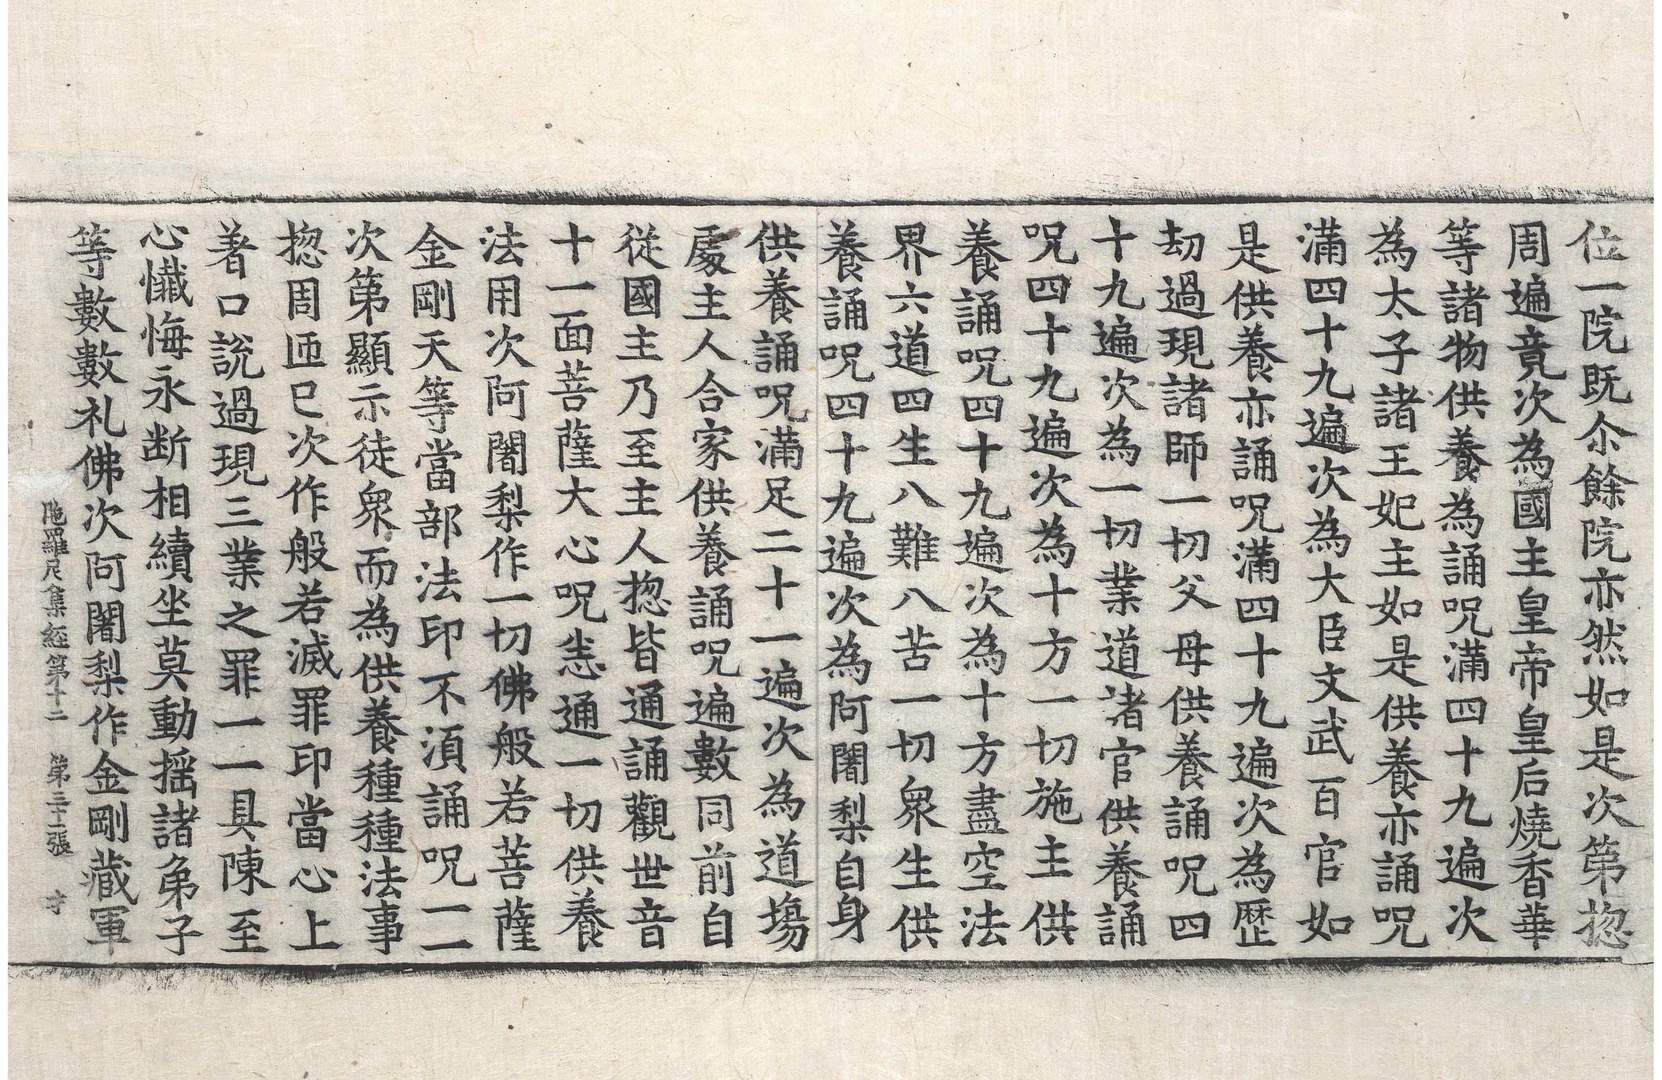 位一院既尒餘院亦然如是次第揔
周遍竟次為國主皇帝皇后燒香華
等諸物供養為誦呪滿四十九遍次
為太子諸王妃主如是供養亦誦呪
滿四十九遍次為大臣文武百官如
是供養亦誦呪滿四十九遍次為歷
劫過現諸師一切父母供養誦呪四
十九遍次為一切業道諸官供養誦
呪四十九遍次為十方一切施主供
養誦呪四十九遍次為十方盡空法
界六道四生八難八苦一切衆生供
養誦呪四十九遍次為阿闍梨自身
供養誦呪滿足二十一遍次為道場
處主人合家供養誦呪遍數同前自
從國主乃至主人揔皆通誦觀世音
十一面菩薩大心呪恚通一切供養
法用次阿闍梨作一切佛般若菩薩
金剛天等當部法印不湏誦呪一一
次第顯示徒衆而為供養種種法事
揔周迊已次作般若滅罪印當心上
著口說過現三業之罪一一具陳至
心懺悔永断相續坐莫動摇諸弟子
等數數礼佛次阿闍梨作金剛藏軍
陁羅尼集經第十二　第三十張　才